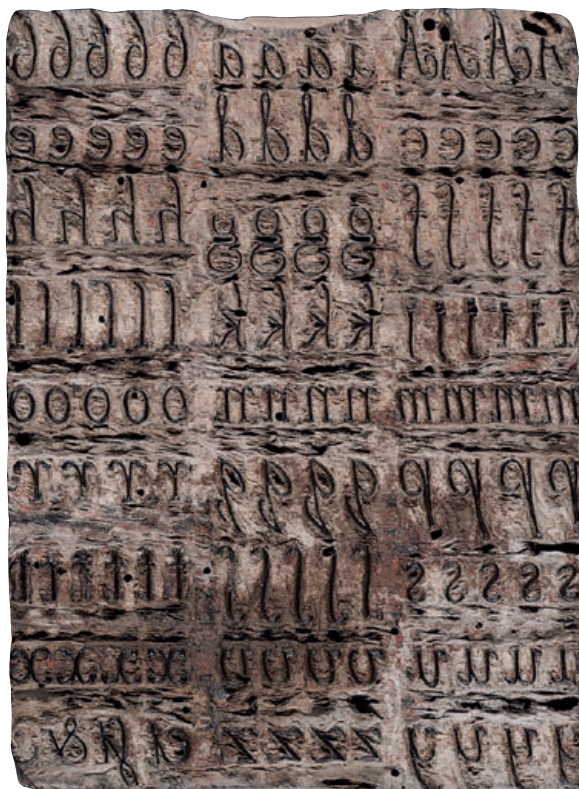 A A A A a a a a b b b b b
c c c c c d d d d e e e e e
f f f f g g g g h h h h
i i i i i i k k k k l l l l l l
m m m m n n n n n o o o o o
p p p p q q q q r r r r
s s s s s ſ ſ ſ ſ ſ t t t t t t
u u u u v v v v v x x x x x
y y y y z z z z